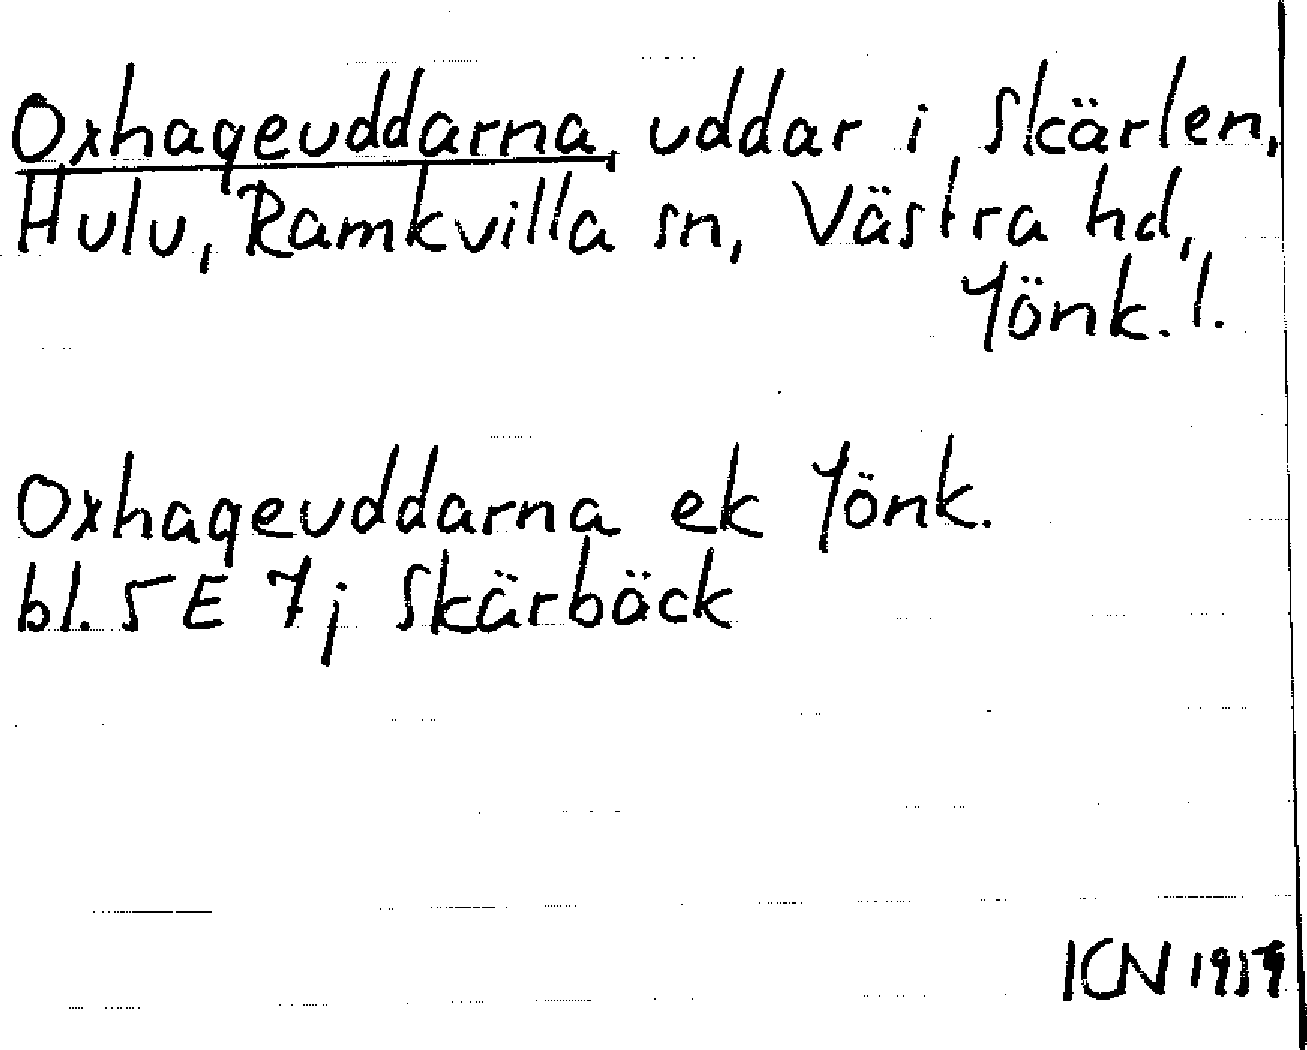 Oxhageuddarna, uddar i Skärlen,
Hulu, Ramkvilla sn, Västra hd,
Jönk. l.
Oxhageuddarna ek Jönk.
bl. 5 E 7; Skärbäck
ICN